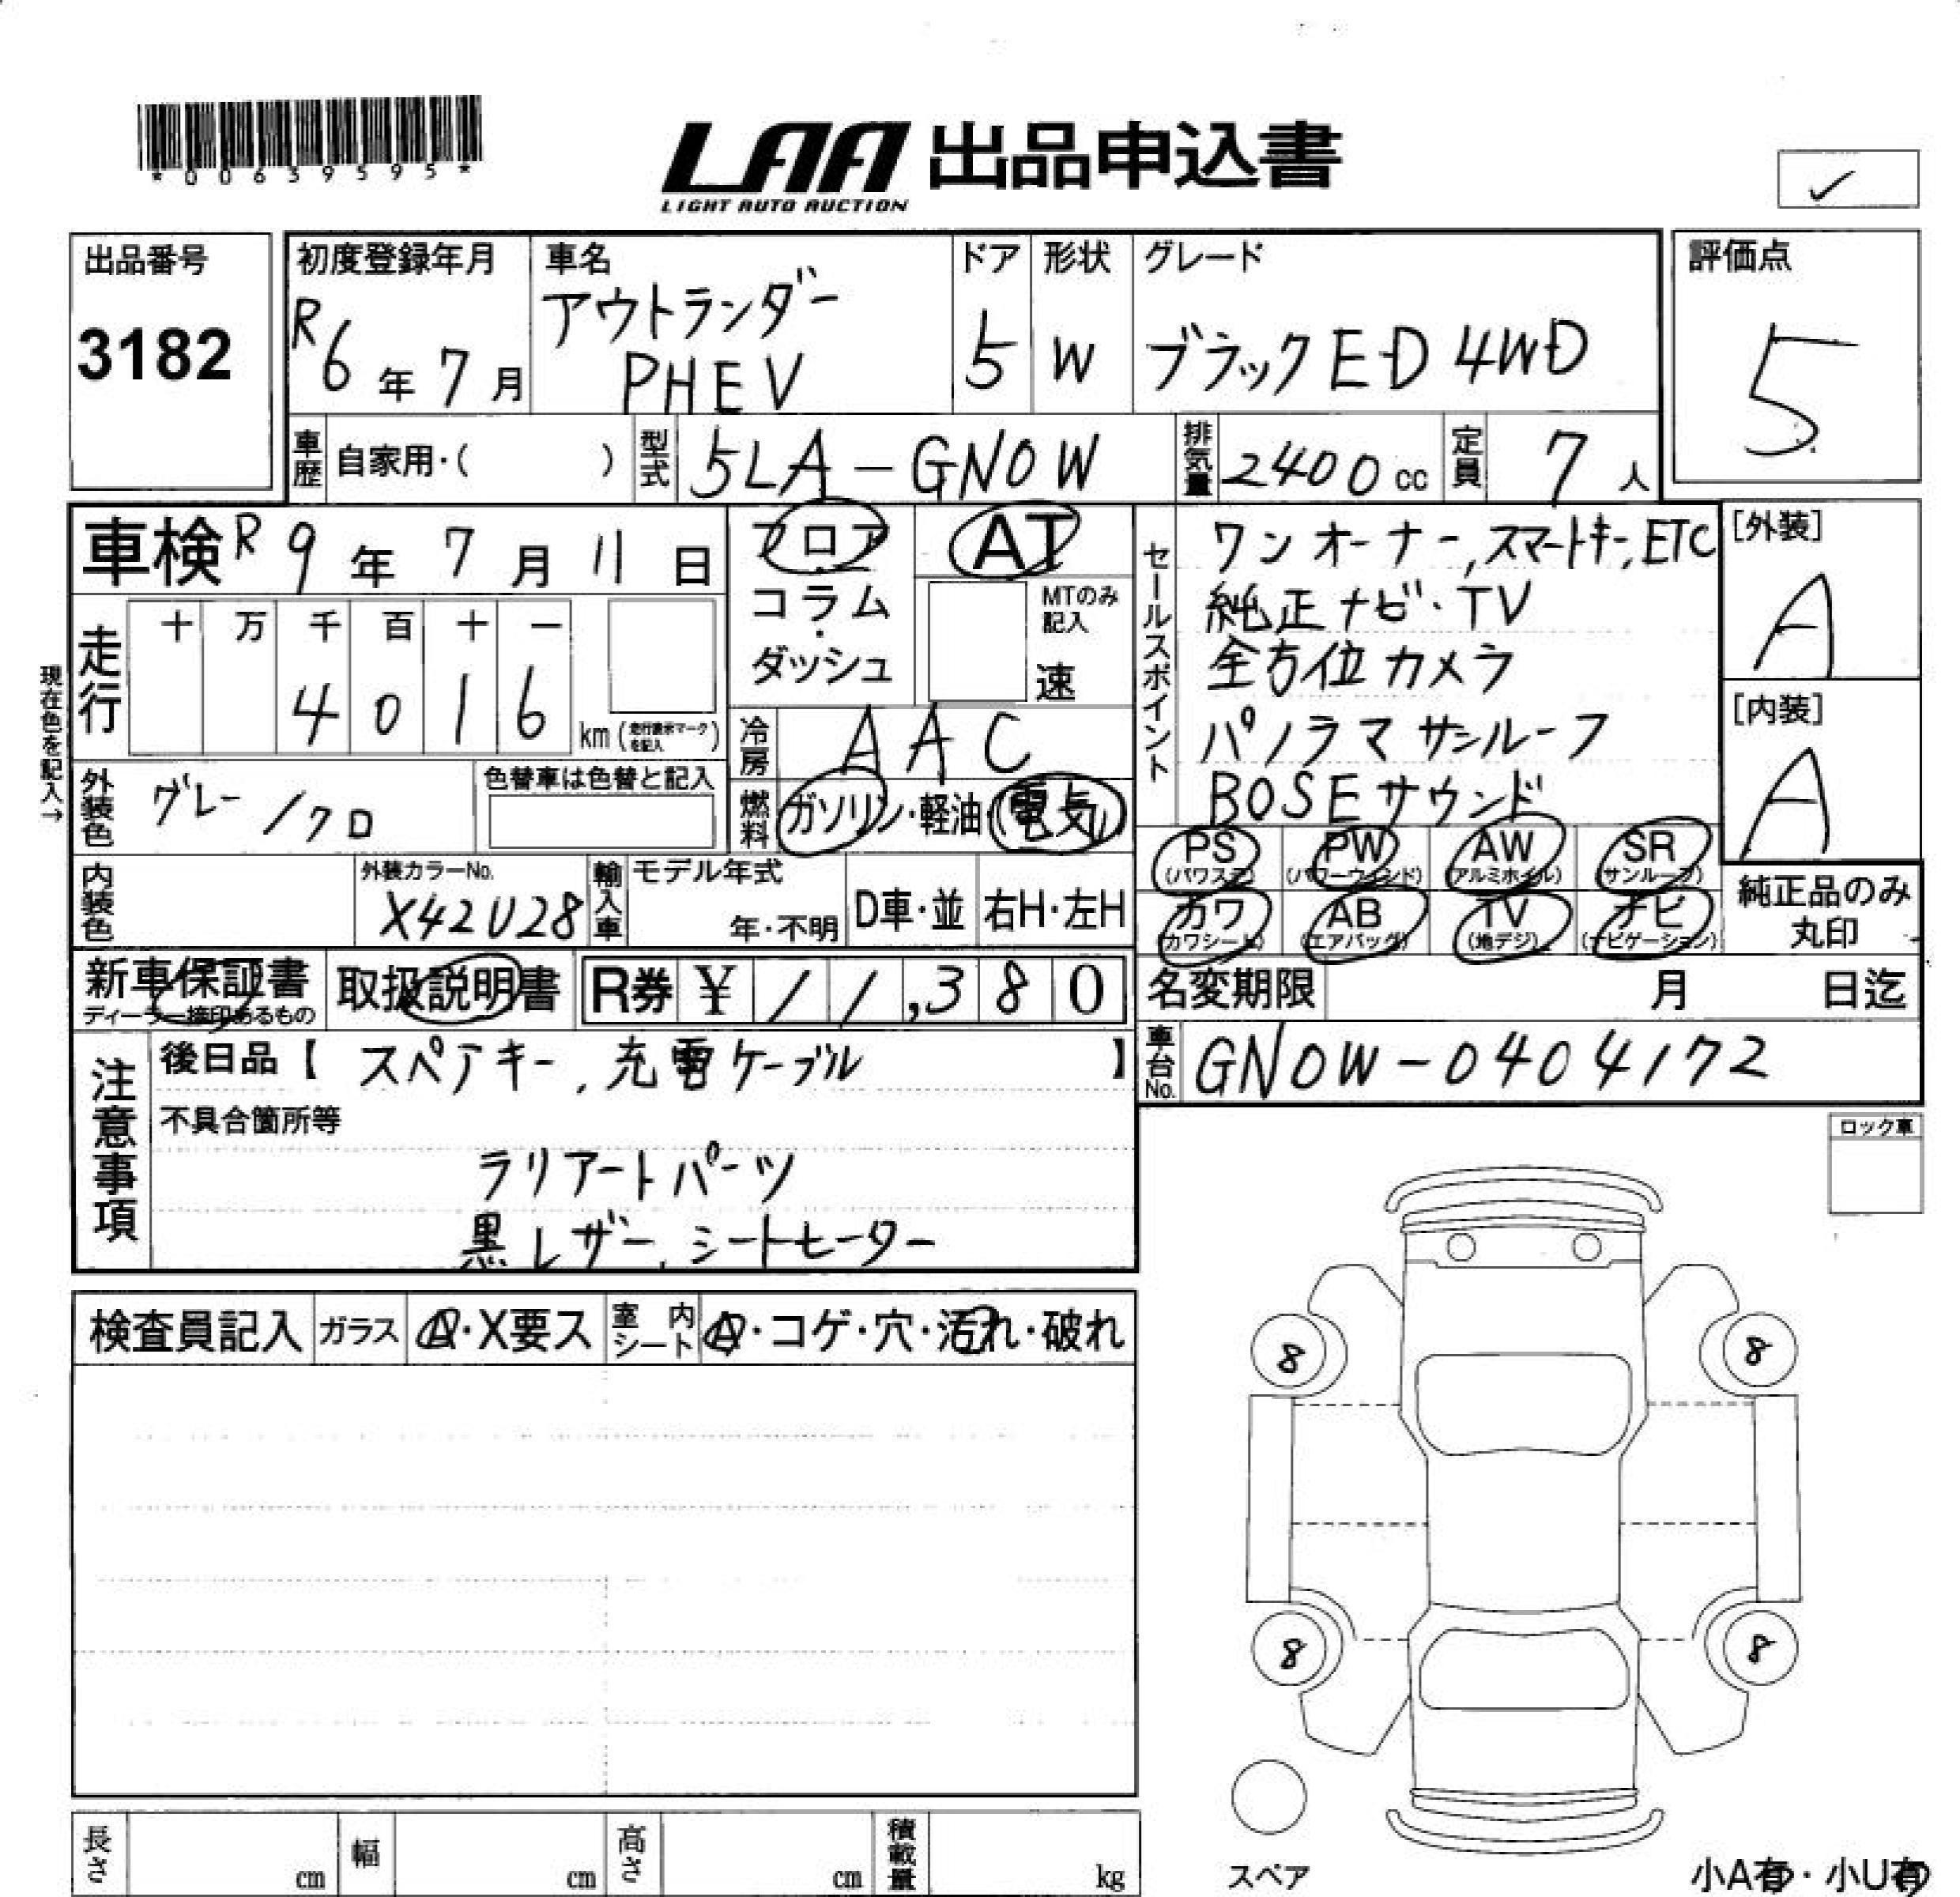 *00639595*
LAA 出品申込書
LIGHT AUTO AUCTION
✓
出品番号
3182
初度登録年月
R6年7月
車名
アウトランダー
PHEV
ドア
5
形状
W
グレード
ブラックE-D 4WD
評価点
5
車歴 自家用・( )
型式 5LA-GN0W
排気量 2400cc
定員 7人
車検 R9年7月11日
フロア
コラム
・
ダッシュ
AT
MTのみ
記入
速
セールスポイント
ワンオーナー,スマートキー,ETC
純正ナビ・TV
全方位カメラ
パノラマサンルーフ
BOSEサウンド
[外装]
A
[内装]
A
走行
十 万 千 百 十 一
4 0 1 6
km(走行表示マークを記入)
現在色を記入→
冷房 AAC
外装色 グレー/クロ
色替車は色替と記入
燃料 ガソリン・軽油・(電気)
PS
(パワステ)
PW
(パワーウィンド)
AW
(アルミホイル)
SR
(サンルーフ)
カワ
(カワシート)
AB
(エアバッグ)
TV
(地デジ)
ナビ
(ナビゲーション)
純正品のみ
丸印
内装色
外装カラーNo.
X42U28
輸入車
モデル年式
年・不明
D車・並
右H・左H
新車保証書
ディーラー捺印あるもの
取扱説明書
R券 ¥ 11,380
名変期限 月 日迄
注意事項
後日品【 スペアキー,充電ケーブル 】
車台No. GN0W-0404172
不具合箇所等
ラリアートパーツ
黒レザー,シートヒーター
ロック車
検査員記入 ガラス A・X要ス
室内シート A・コゲ・穴・汚れ・破れ
8
8
8
8
スペア
長さ cm
幅 cm
高さ cm
積載量 kg
小A有・小U有